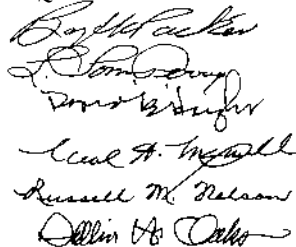 Boyd K Packer
L. Tom Perry
David B. Haight
Neal A. Maxwell
Russell M. Nelson
Dallin H Oaks